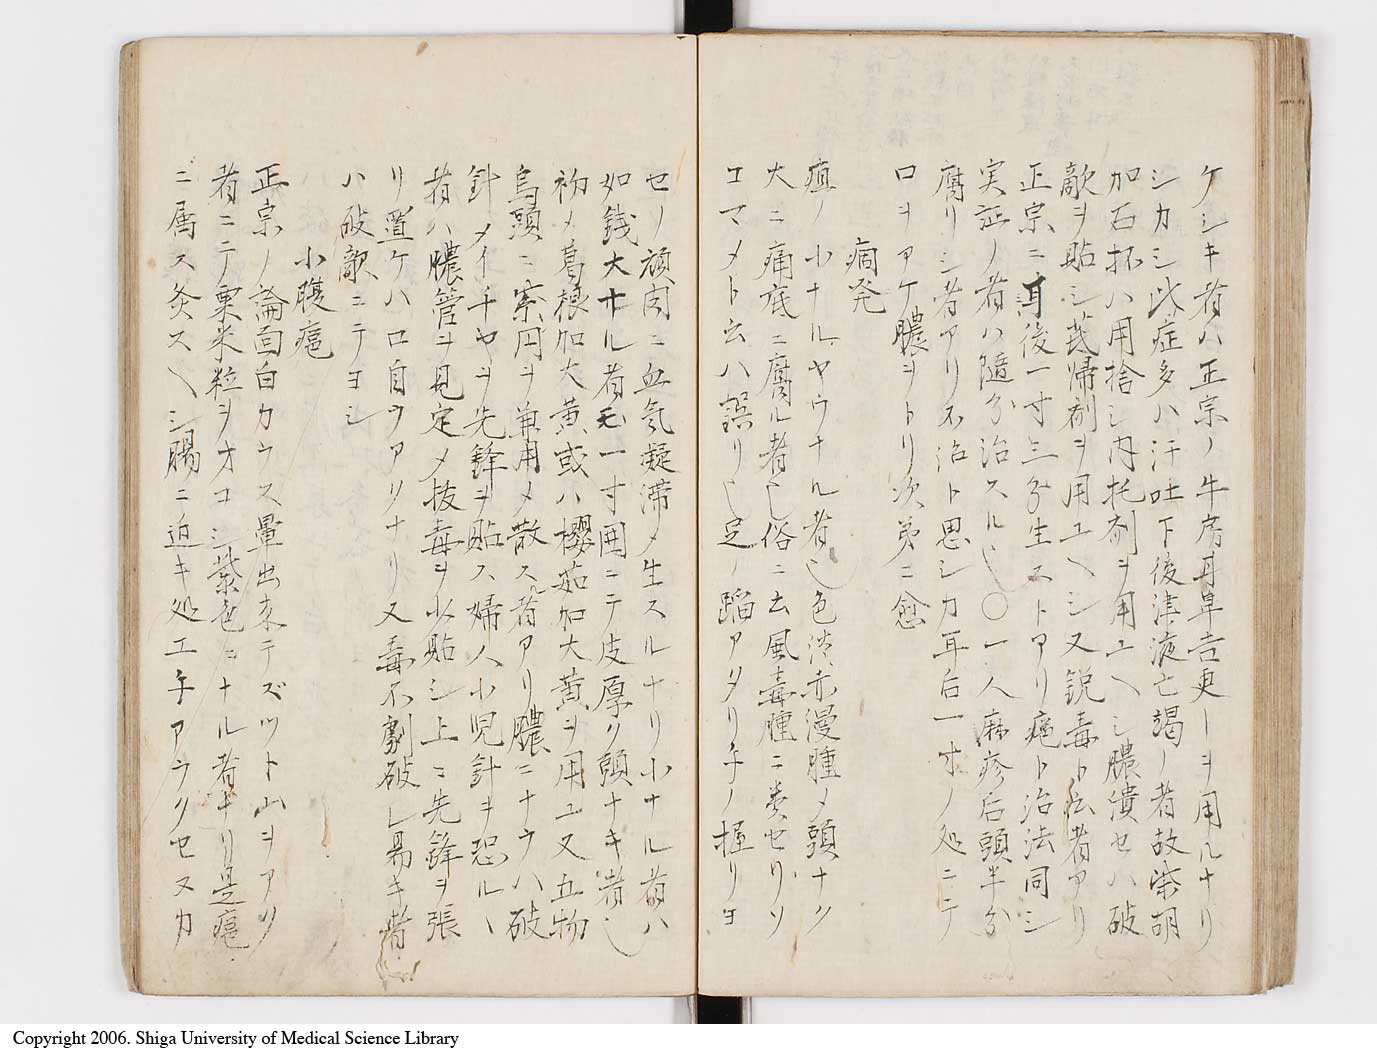 ケシキ者ハ正宗ノ牛房耳草吉更ーヲ用ルナリ
シカシ此症多ハ汗吐下後津液亡竭ノ者故柴胡
加石抔ハ用捨シ内托剤ヲ用ユヘシ膿潰セハ破
敵ヲ貼シ芪帰剤ヲ用ユヘシ又鋭毒ト云者アリ
正宗ニ耳後一寸三分生ストアリ疤ト治法同シ
実証ノ者ハ随分治スル也〇一人麻疹后頭半分
腐リシ者アリ不治ト思シカ耳后一寸ノ処ニテ
口ヲアケ膿ヲトリ次第ニ愈
痈発
疽ノ小ナルヤウナル者也色淡赤漫腫メ頭ナク
大ニ痛底ニ腐ル者也俗ニ云風毒腫ニ類セリソ
コマメト云ハ誤リ也足ノ蹈アタリ手ノ握リヨ
セノ頑肉ニ血気凝滞メ生スルナリ小ナル者ハ
如銭大ナル者モ一寸囲ニテ皮厚ク頭ナキ者也
初メ葛根加大黄或ハ櫻茹加大黄ヲ用ユ又五物
烏頭ニ紫円ヲ兼用メ散スル者アリ膿ニナラハ破
針メイチヤヲ先鋒ヲ貼ス婦人小児針ヲ恐ルヽ
者ハ膿管ヲ見定メ抜毒ヲ少貼シ上ニ先鋒ヲ張
リ置ケハ口自ラアクナリ又毒不劇破レ易キ者
ハ破敵ニテヨシ
小腹疤
正宗ノ論面白カラス暈出来テズット山ヲアケ
者ニテ粟米粒ヲオコシ紫色ニナル者ナリ是疤
ニ属ス灸スヘシ腸ニ迫キ処エ手アラクセヌカ